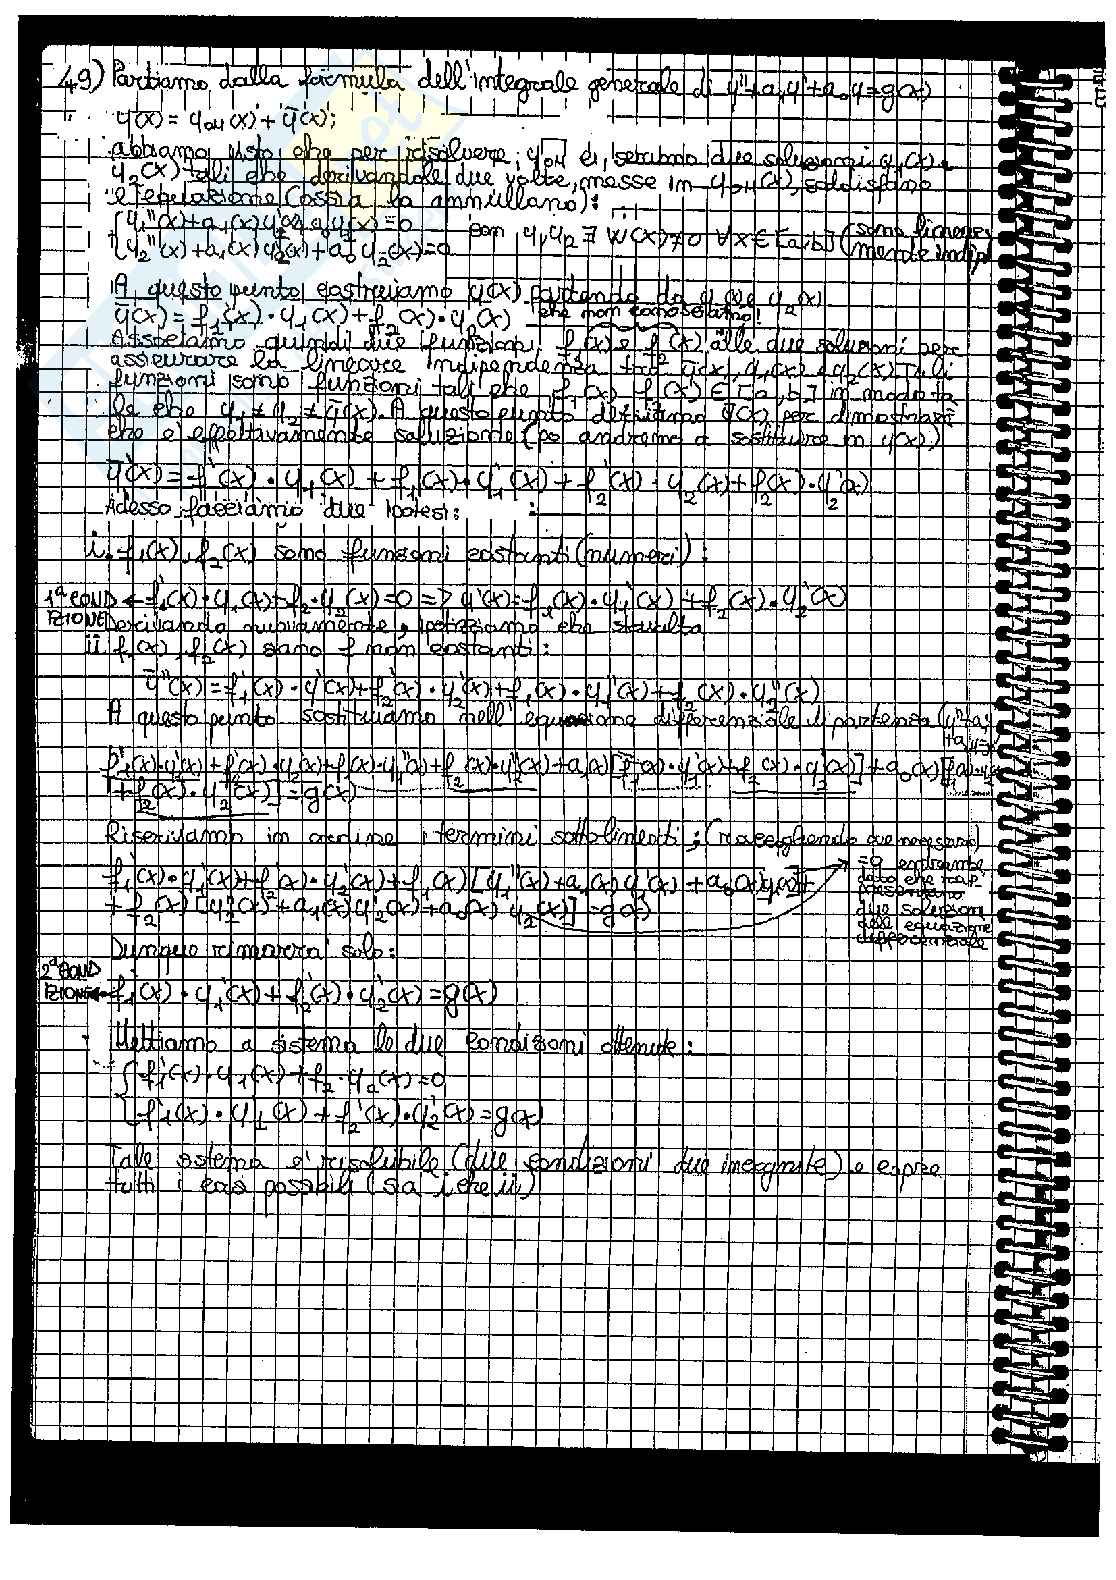 49) Partiamo dalla formula dell'integrale generale di y"+a₁y'+a₀y=g(x)
y(x) = y₀H(x)+ȳ(x);
abbiamo visto che per risolvere y₀H ci servono due soluzioni y₁(x) e
y₂(x) tali che derivandole due volte, messe in y₀H(x), soddisfano
l'equazione (ossia la annullano):
{y₁"(x)+a₁(x)y₁'(x)+a₀y₁(x)=0
{y₂"(x)+a₁(x)y₂'(x)+a₀y₂(x)=0 con y₁,y₂ ∃ W(x)≠0 ∀x∈[a,b] (sono linear
mente indip)
A questo punto costruiamo ȳ(x) partendo da y₁(x) e y₂(x)
ȳ(x) = f₁(x)·y₁(x)+f₂(x)·y₂(x) che non conosciamo!
Associamo quindi due funzioni f₁(x) e f₂(x) alle due soluzioni per
assicurare la lineare indipendenza tra ȳ(x), y₁(x) e y₂(x). Tali
funzioni sono funzioni tali che f₁(x), f₂(x) ∈ [a,b] in modo ta
le che y₁ ≠ y₂ ≠ ȳ(x). A questo punto deriviamo ȳ(x) per dimostrare
che è effettivamente soluzione (poi andremo a sostituire in y(x))
ȳ'(x) = f₁'(x)·y₁(x) + f₁(x)·y₁'(x) + f₂'(x)·y₂(x)+f₂(x)·y₂'(x)
Adesso facciamo due ipotesi:
i. f₁(x), f₂(x) sono funzioni costanti (numeri):
1ª COND ← f₁'(x)·y₁(x)+f₂'·y₂(x)=0 => ȳ'(x)=f₁(x)·y₁'(x) + f₂(x)·y₂'(x)
IZIONE Derivando nuovamente, ipotizziamo che stavolta
ii. f₁(x), f₂(x) siano f non costanti:
ȳ"(x) = f₁'(x)·y₁'(x)+f₂'(x)·y₂'(x)+f₁(x)·y₁"(x)+f₂(x)·y₂"(x)
A questo punto sostituiamo nell'equazione differenziale di partenza (y"+a₁
f₁'(x)·y₁'(x)+f₂'(x)·y₂'(x)+f₁(x)·y₁"(x)+f₂(x)·y₂"(x)+a₁(x)[f₁(x)·y₁'(x)+f₂(x)·y₂'(x)]+a₀(x)[f₁(x)·y₁
+f₂(x)·y₂(x)]=g(x)
Riscriviamo in ordine i termini sottolineati; (raccogliendo ove necessario)
f₁'(x)·y₁'(x)+f₂'(x)·y₂'(x)+f₁(x)[y₁"(x)+a₁(x)y₁'(x)+a₀(x)y₁(x)]+
+f₂(x)[y₂"(x)+a₁(x)y₂'(x)+a₀(x)y₂(x)]=g(x)
=0 entrambe
dato che rap
presentano
due soluzioni
dell'equazione
differenziale
Dunque rimarrà solo:
2ª COND
IZIONE ← f₁'(x)·y₁'(x)+f₂'(x)·y₂'(x)=g(x)
Mettiamo a sistema le due condizioni ottenute:
{f₁'(x)·y₁(x)+f₂'·y₂(x)=0
{f₁'(x)·y₁'(x)+f₂'(x)·y₂'(x)=g(x)
Tale sistema è risolubile (due condizioni due incognite) e copre
tutti i casi possibili (sia i che ii)